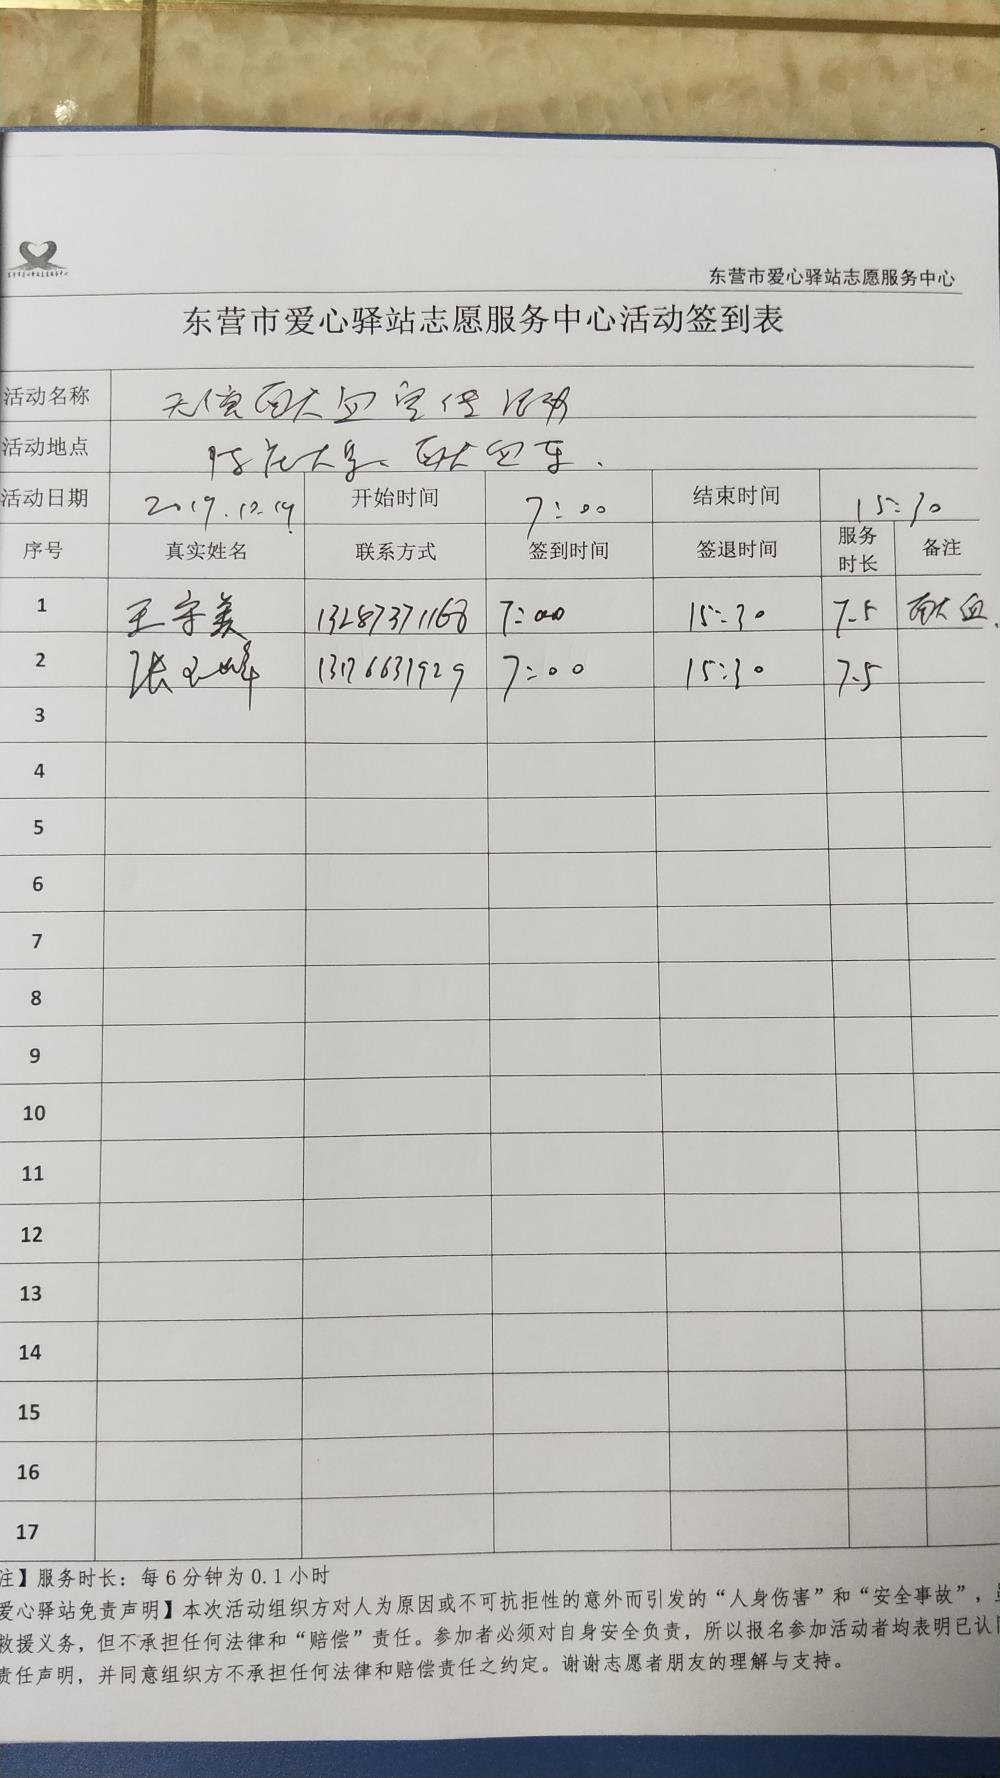 东营市爱心驿站志愿服务中心
东营市爱心驿站志愿服务中心活动签到表
活动名称 无偿献血宣传活动
活动地点 献血车.
活动日期 2019.12.19 开始时间 7:00 结束时间 15:30
序号 真实姓名 联系方式 签到时间 签退时间 服务时长 备注
1 王守美 13287371168 7:00 15:30 7.5 献血.
2 张玉峰 13176631929 7:00 15:30 7.5
3
4
5
6
7
8
9
10
11
12
13
14
15
16
17
注】服务时长：每6分钟为0.1小时
爱心驿站免责声明】本次活动组织方对人为原因或不可抗拒性的意外而引发的“人身伤害”和“安全事故”，
救援义务，但不承担任何法律和“赔偿”责任。参加者必须对自身安全负责，所以报名参加活动者均表明已认
责任声明，并同意组织方不承担任何法律和赔偿责任之约定。谢谢志愿者朋友的理解与支持。